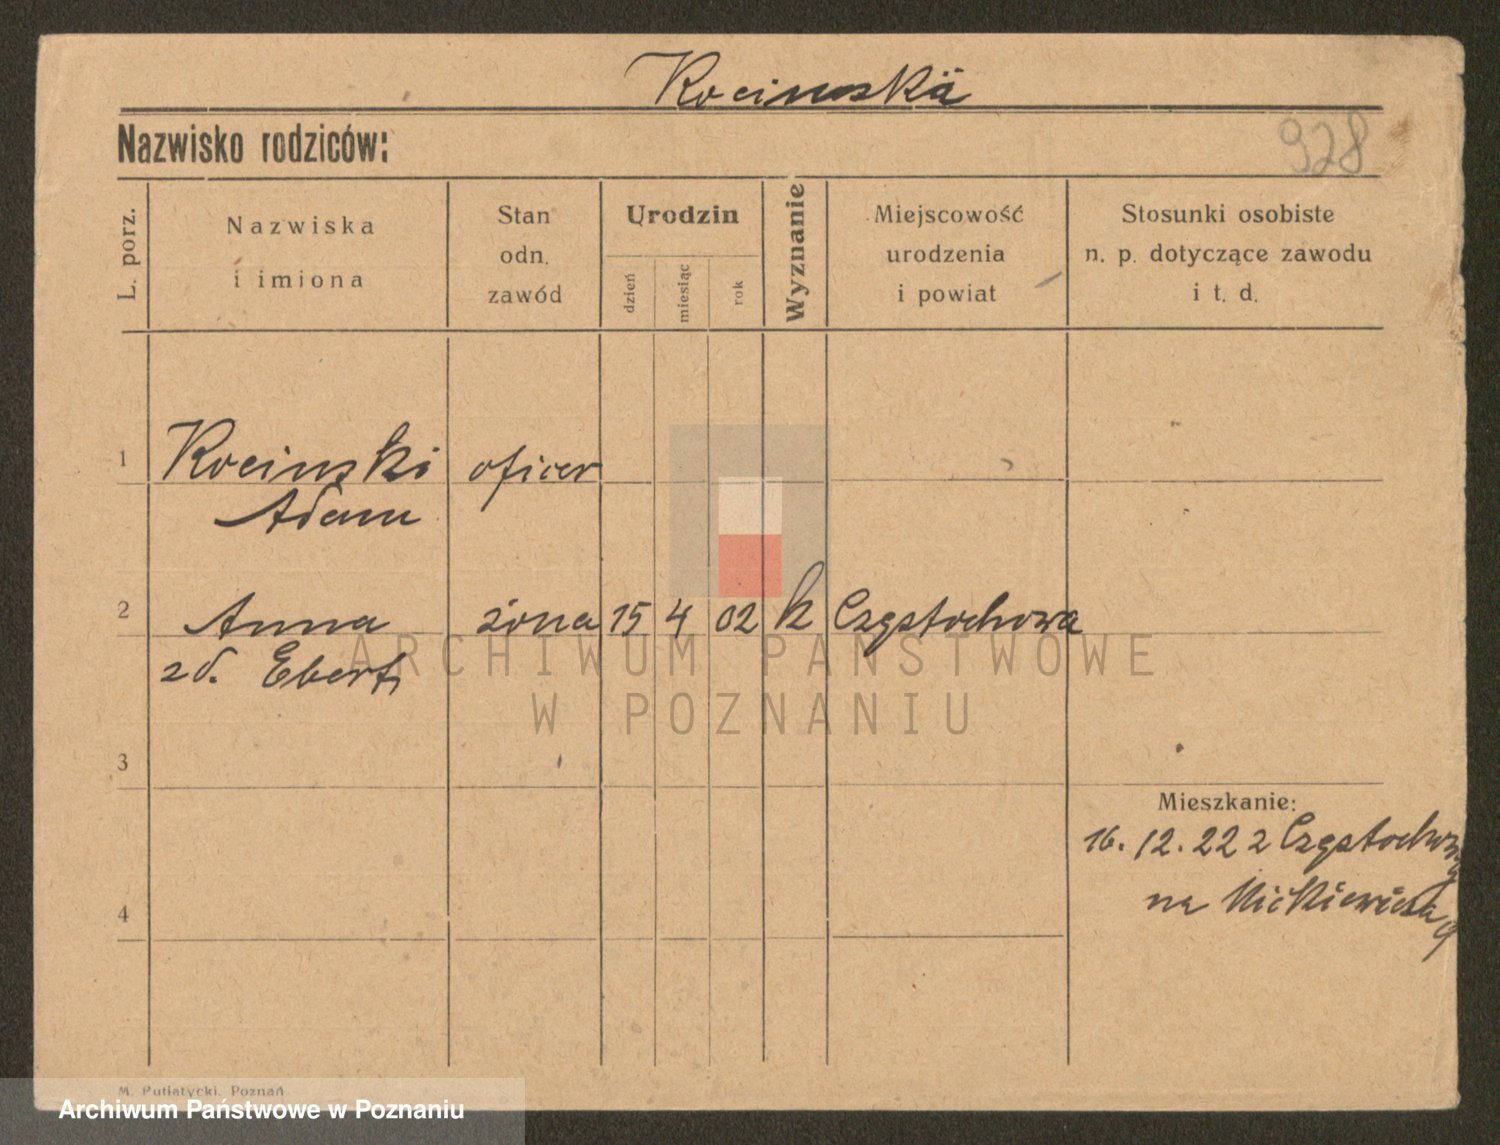 Kocinska
Nazwisko rodziców:
928
L. porz.
Nazwiska
i imiona
Stan
odn.
zawód
Urodzin
dzień
miesiąc
rok
Wyznanie
Miejscowość
urodzenia
i powiat
Stosunki osobiste
n. p. dotyczące zawodu
i t. d.
1 Kocinski oficer
Adam
2 Anna żona 15 4 02 k Częstochowa
zd. Ebert
ARCHIWUM PAŃSTWOWE
W POZNANIU
3
Mieszkanie:
16. 12. 22 z Częstochowy
na Mickiewicza 9
4
M. Putiatycki, Poznań
Archiwum Państwowe w Poznaniu